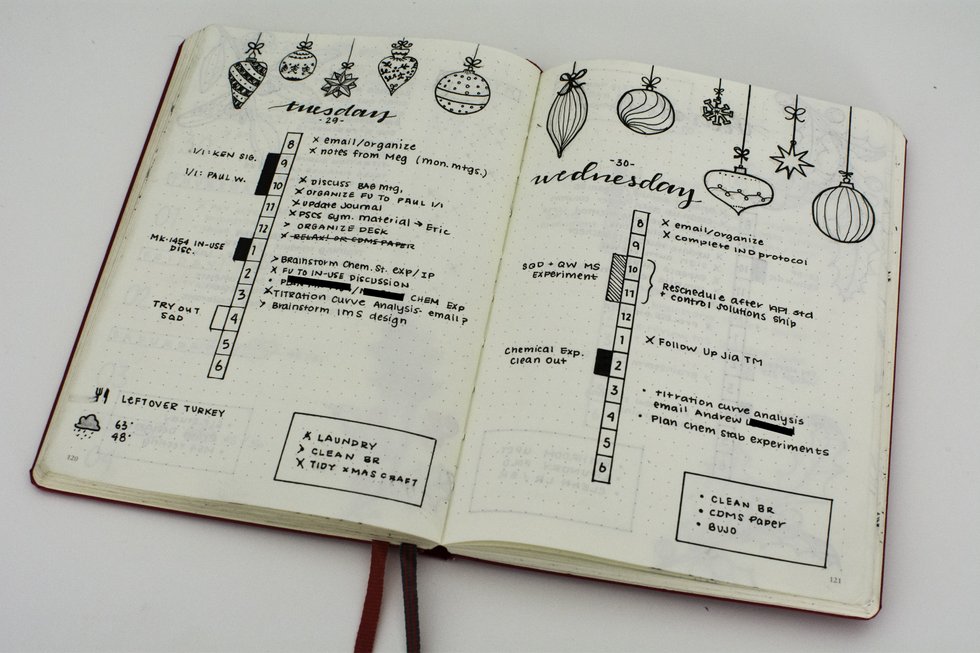 tuesday
-29-
8
9
10
11
12
1
2
3
4
5
6
1/1: KEN SIG.
1/1: PAUL W.
MK-1454 IN-USE
DISC.
TRY OUT
SQD
x email/organize
x notes from Meg (mon. mtgs.)
x DISCUSS BAG Mtg,
x ORGANIZE FU TO PAUL 1/1
x update Journal
x PSCS sym. material → Eric
> ORGANIZE DESK
x RELAX! OR CDMS PAPER
> Brainstorm Chem. St. exp/IP
x FU TO IN-USE DISCUSSION
x / CHEM EXP
x Titration Curve Analysis - email?
> Brainstorm IMS design
LEFTOVER TURKEY
63°
48°
x LAUNDRY
> CLEAN BR
x TIDY XMAS CRAFT
120
-30-
wednesday
8
9
10
11
12
1
2
3
4
5
6
SQD + QW MS
Experiment
Chemical Exp.
Clean Out
x email/organize
x complete IND protocol
Reschedule after API std
+ control solutions ship
x Follow Up Jia TM
• titration curve analysis
email Andrew
• Plan chem stab experiments
• CLEAN BR
• CDMS Paper
• BUJO
121